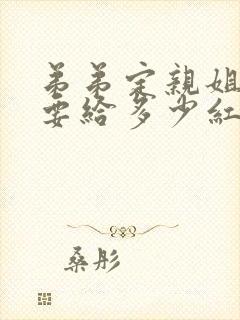 弟弟定親姐
要給多少紅
桑彤